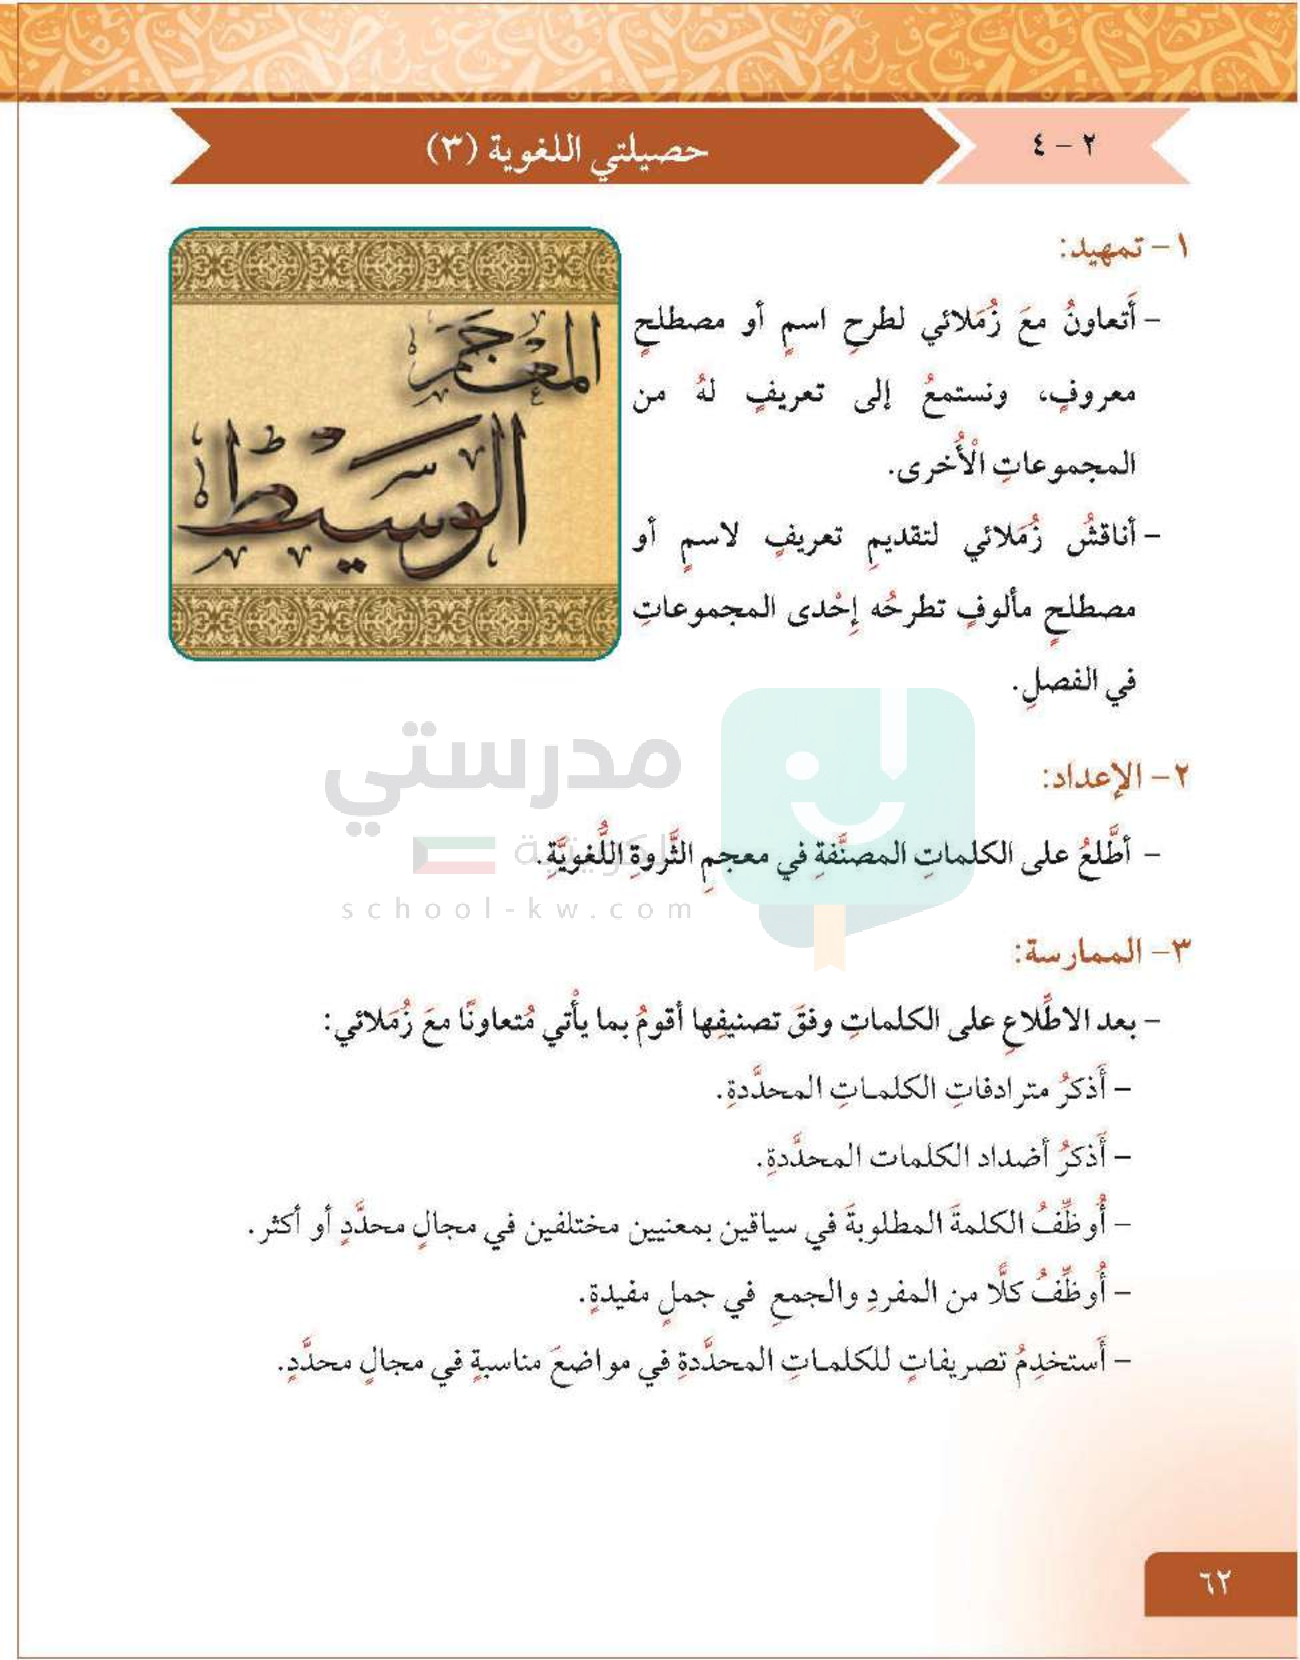 ٢ – ٤
حصيلتي اللغوية (٣)
١ – تمهيد:
– أَتعاونُ معَ زُمَلائي لطرحِ اسمٍ أو مصطلحٍ
معروفٍ، ونستمعُ إلى تعريفٍ لهُ من
المجموعاتِ الْأُخرى.
– أناقشُ زُمَلائي لتقديمِ تعريفٍ لاسمٍ أو
مصطلحٍ مألوفٍ تطرحُه إِحْدى المجموعاتِ
في الفصلِ.
المعجم
الوسيط
٢ – الإعداد:
– أطَّلعُ على الكلماتِ المصنَّفةِ في معجمِ الثَّروةِ اللُّغويَّةِ.
مدرستي
الكويتية
school-kw.com
٣ – الممارسة:
– بعد الاطِّلاعِ على الكلماتِ وفقَ تصنيفِها أقومُ بما يأْتي مُتعاونًا معَ زُمَلائي:
– أَذكرُ مترادفاتِ الكلماتِ المحدَّدةِ.
– أَذكرُ أضداد الكلمات المحدَّدةِ.
– أُوظِّفُ الكلمةَ المطلوبةَ في سياقين بمعنيين مختلفين في مجالٍ محدَّدٍ أو أكثر.
– أُوظِّفُ كلًّا من المفردِ والجمعِ في جملٍ مفيدةٍ.
– أَستخدِمُ تصريفاتٍ للكلماتِ المحدَّدةِ في مواضعَ مناسبةٍ في مجالٍ محدَّدٍ.
٦٢